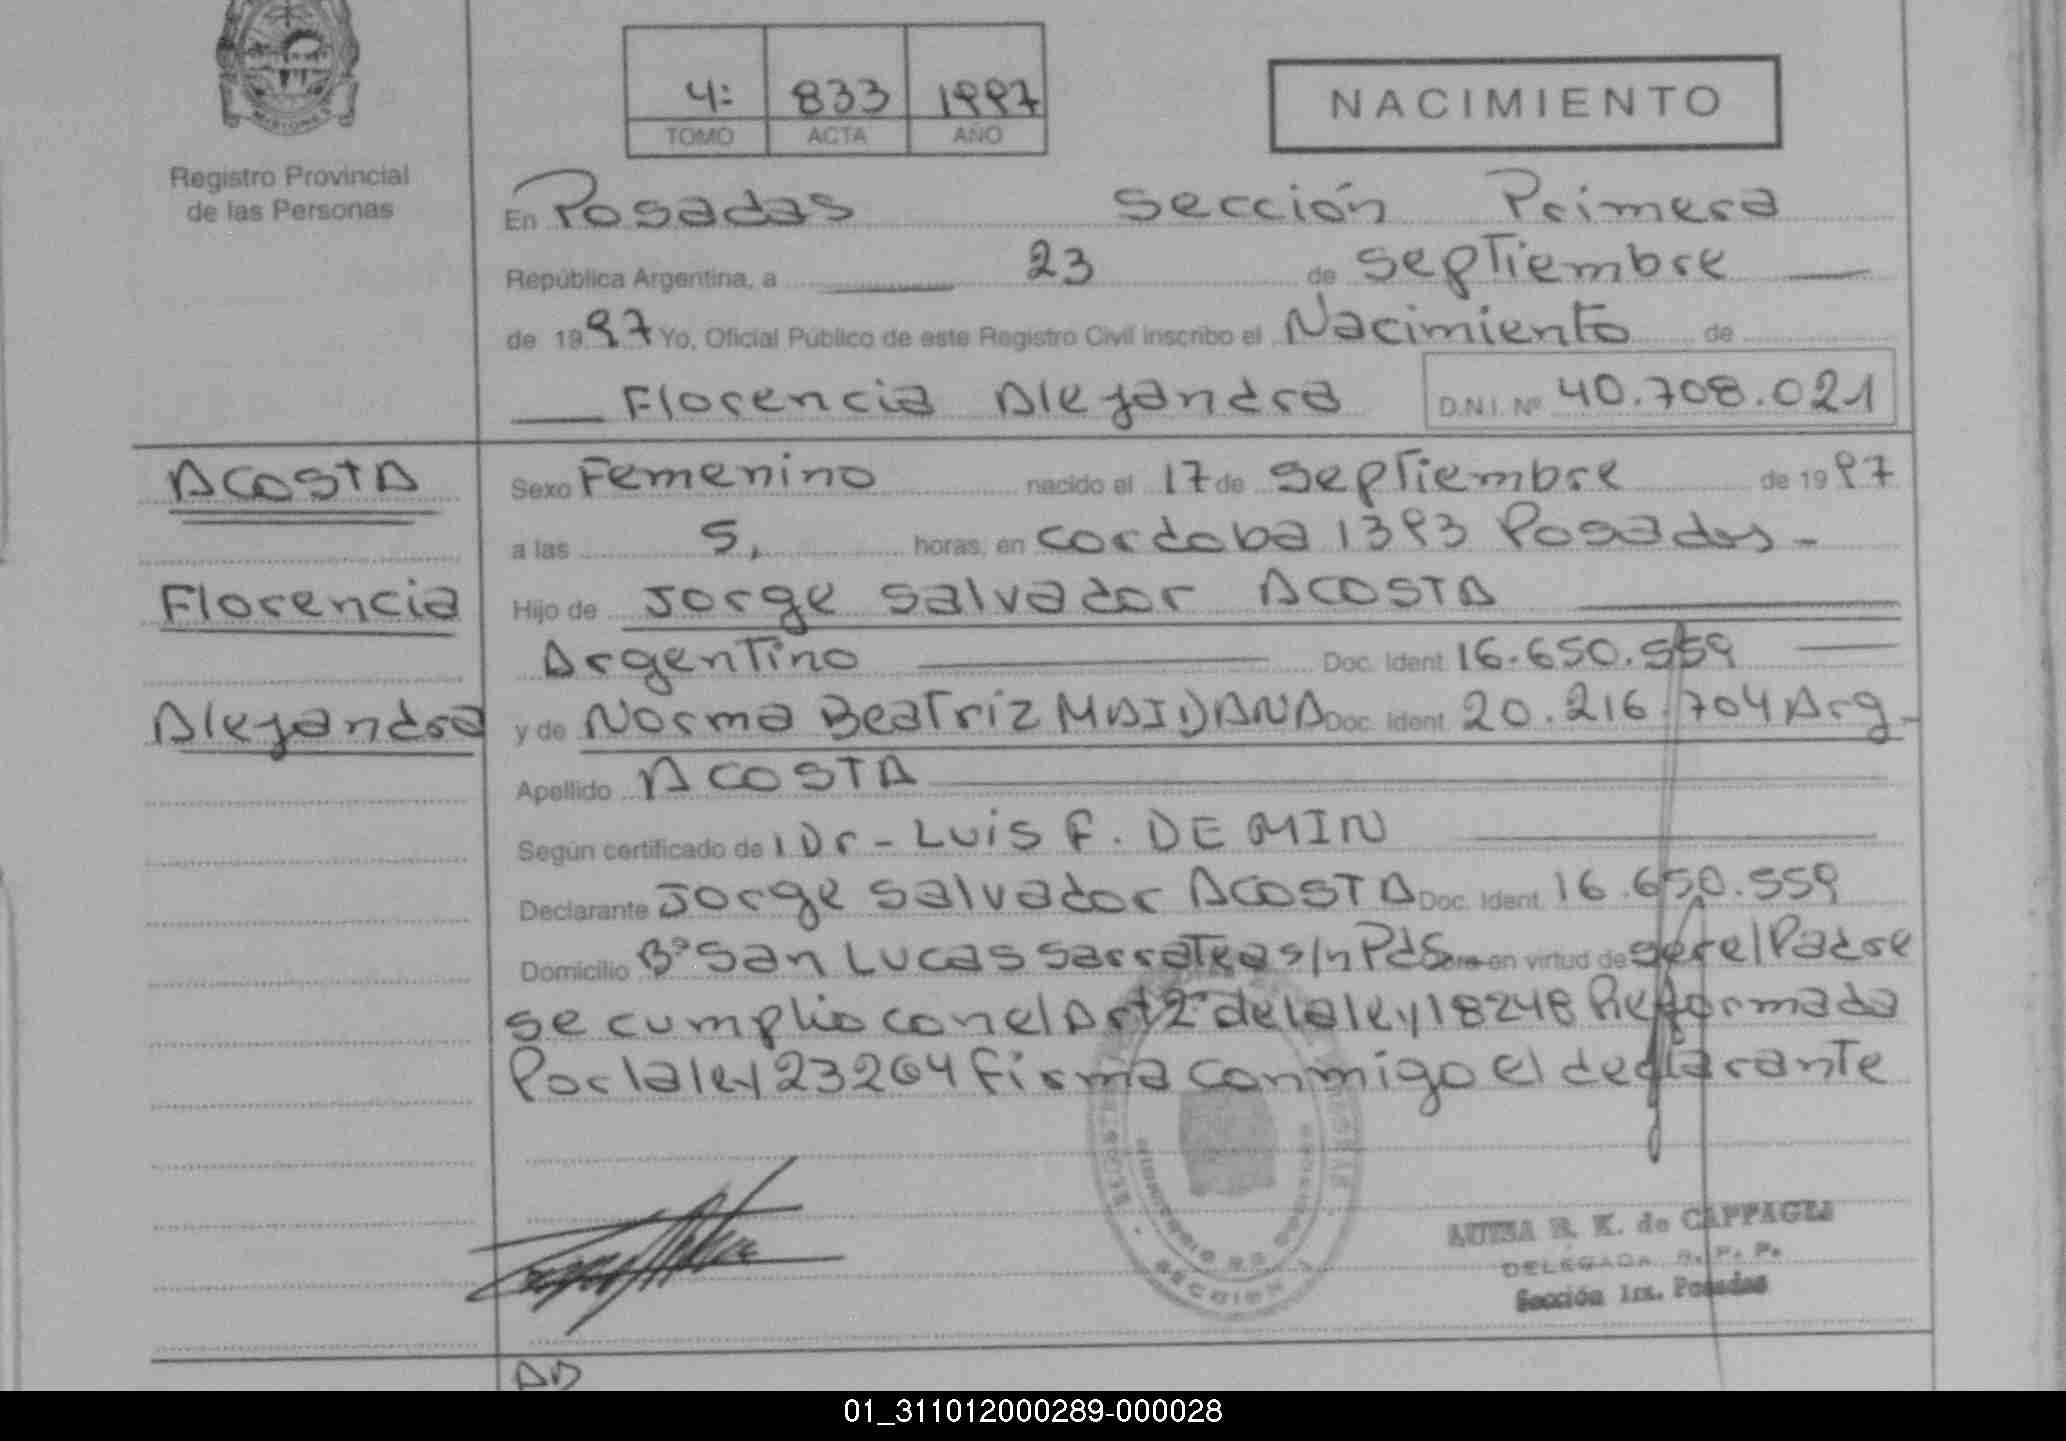 MISIONES
Registro Provincial
de las Personas
4: 833 1997
TOMO ACTA AÑO
NACIMIENTO
En Posadas Sección Primera
República Argentina, a 23 de Septiembre
de 1997 Yo, Oficial Público de este Registro Civil inscribo el Nacimiento de
Florencia Alejandra D.N.I. Nº 40.708.021
ACOSTA
Florencia
Alejandra
Sexo Femenino nacido el 17 de Septiembre de 1997
a las 5, horas, en Cordoba 1393 Posadas -
Hijo de Jorge Salvador ACOSTA
Argentino Doc. Ident. 16.650.559
y de Norma Beatriz MAIDANA Doc. Ident. 20.216.704 Arg-
Apellido ACOSTA
Según certificado de Dr - Luis F. DE MIN
Declarante Jorge Salvador ACOSTA Doc. Ident. 16.650.559
Domicilio Bº San Lucas Sarratea s/n Pds en virtud de ser el Padre
se cumplio con el Art 2º de la ley 18248 Reformada
Por la ley 23264 firma conmigo el declarante
SECCION 1
LUISA R. K. de CAPPAGLI
DELEGADA R. P. P.
Sección 1ra. Posadas
AD
01_311012000289-000028